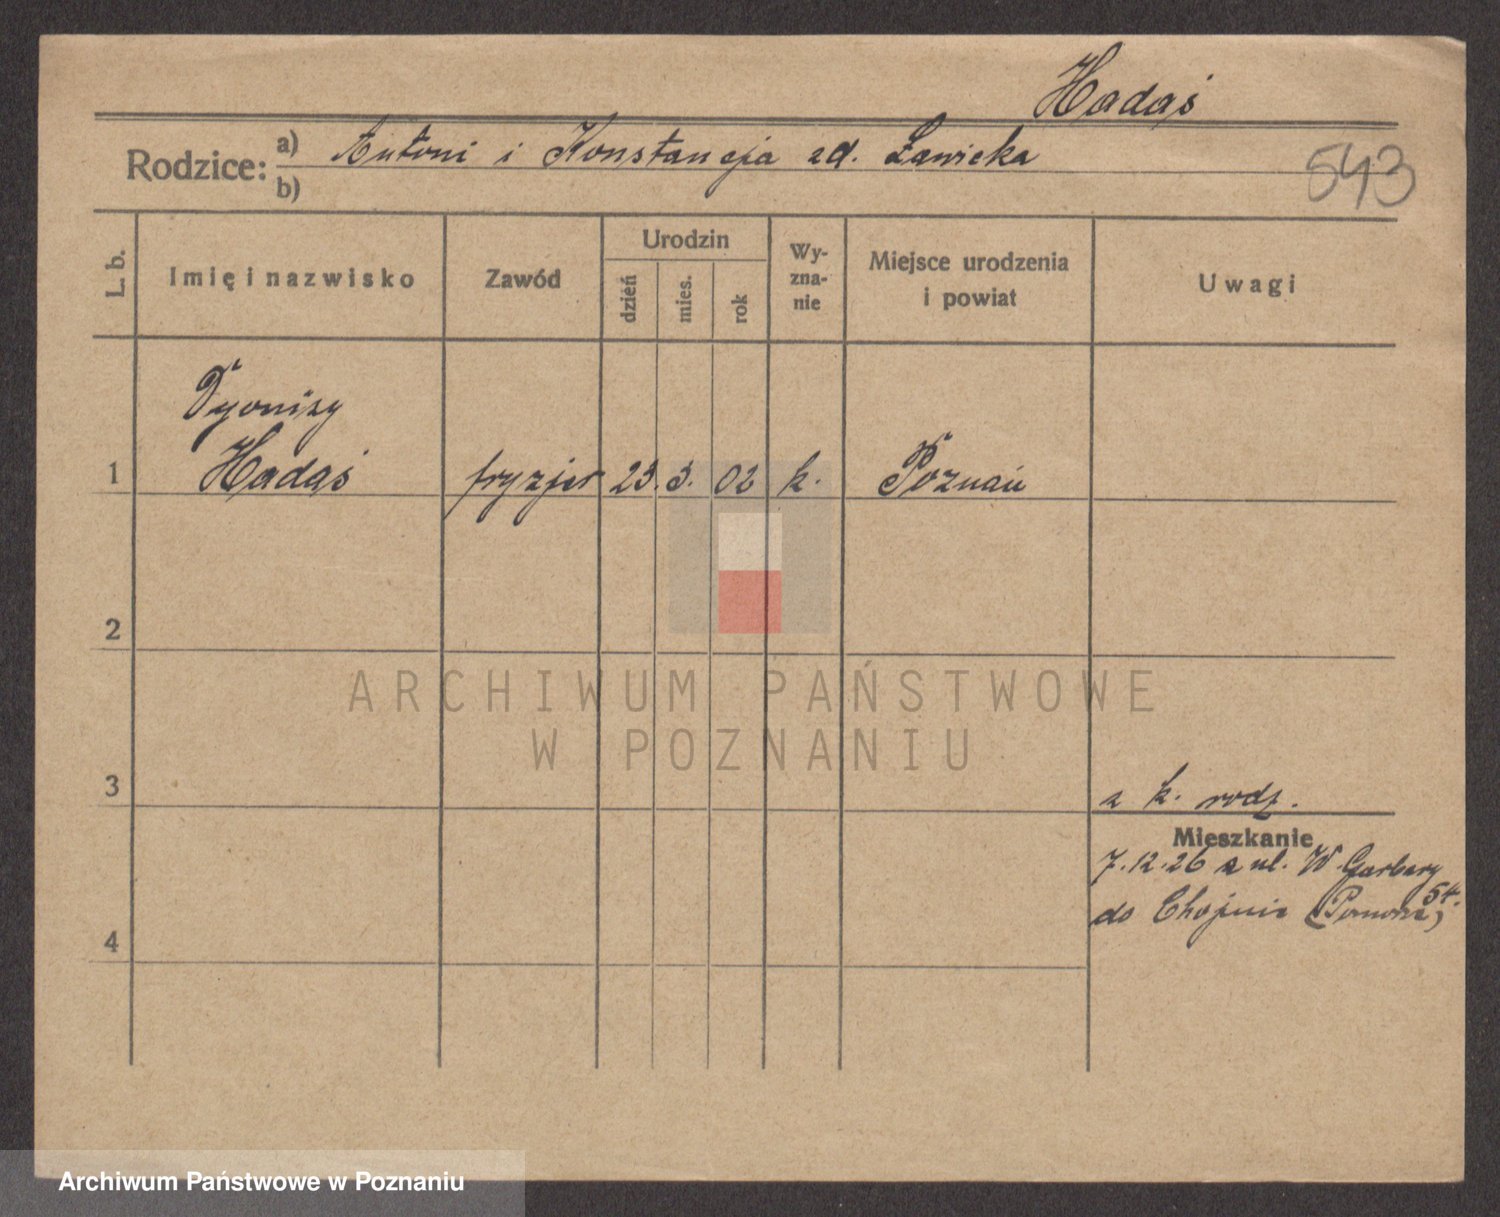 Hadaś
Rodzice: a) Antoni i Konstancja zd. Ławicka
b)
543
L. b.
Imię i nazwisko
Zawód
Urodzin
dzień
mies.
rok
Wy-
zna-
nie
Miejsce urodzenia
i powiat
Uwagi
Dyonizy
1 Hadaś fryzjer 23. 3. 02 k. Poznań
2
ARCHIWUM PAŃSTWOWE
W POZNANIU
3
z k. rodz.
Mieszkanie
7.12.26 z ul. W. Garbary
54.
do Chojnic (Pomorze)
4
Archiwum Państwowe w Poznaniu